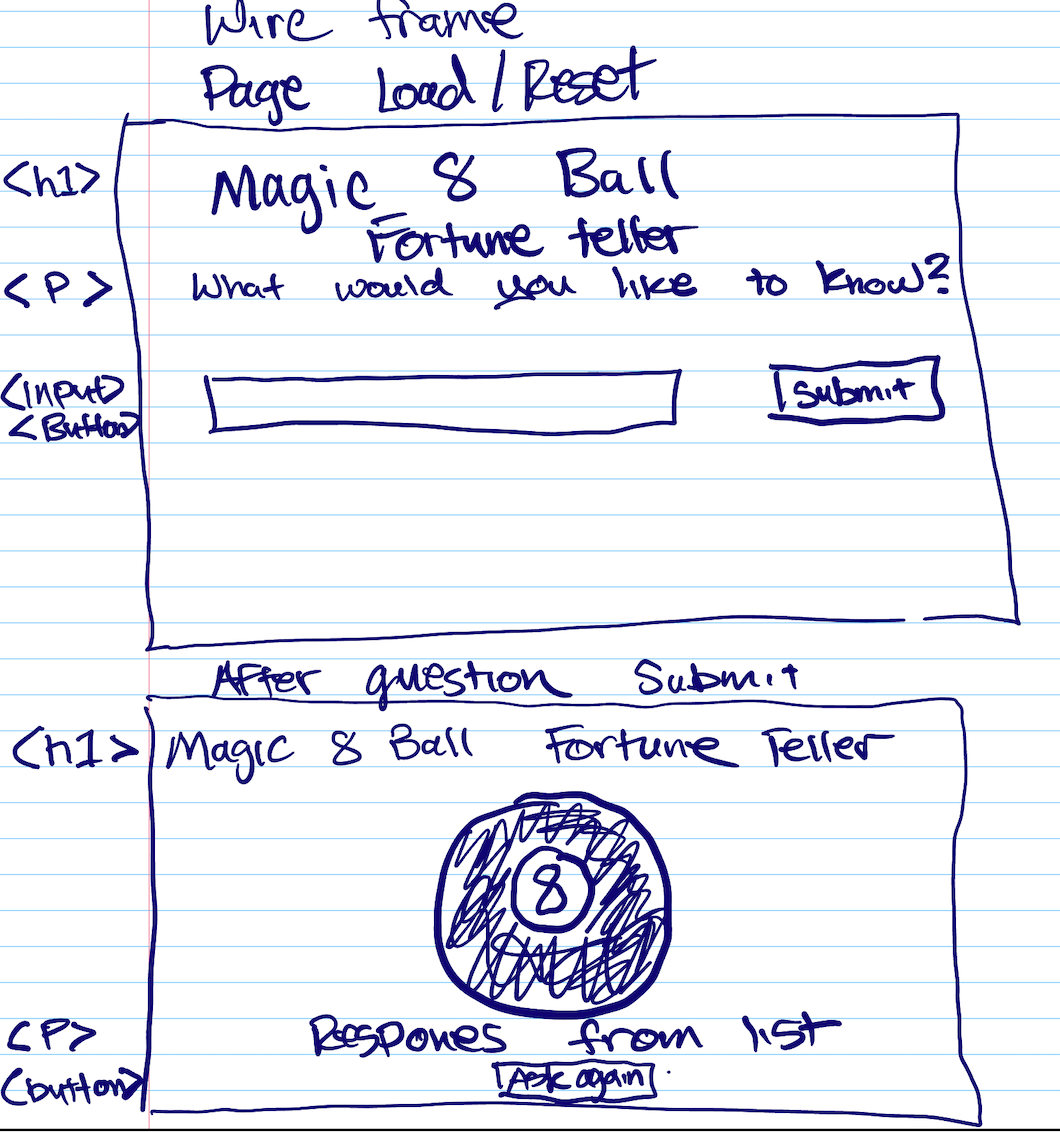 Wire frame
Page Load / Reset
<h1> Magic 8 Ball
Fortune teller
<P> What would you like to know?
<input> Submit
<Button>
After question Submit
<h1> Magic 8 Ball Fortune Teller
8
<P> Respones from list
<button> Ask again